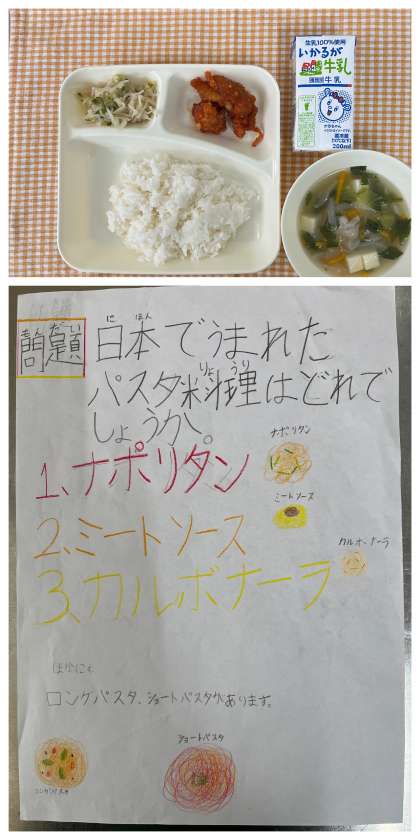 生乳100%使用
いかるが
牛乳
牛乳
200ml
もんだい
問題
にほん
日本でうまれた
りょうり
パスタ料理はどれで
しょうか。
1、ナポリタン
ナポリタン
ミートソース
2、ミートソース
カルボナーラ
3、カルボナーラ
ほかにも
ロングパスタ、ショートパスタがあります。
ロングパスタ
ショートパスタ